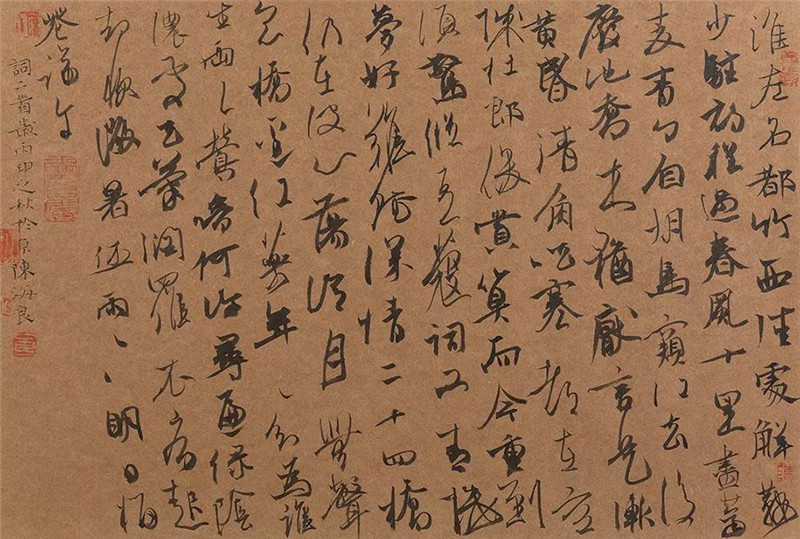 淮左名都竹西佳處解鞍
少駐初程過春風十里盡薺
麦青々自胡馬窺江去後
廢池喬木猶厭言兵漸
黄昏清角吹寒都在空
城杜郎俊賞算而今重到
須驚縱豆蔻詞工青樓
夢好難賦深情二十四橋
仍在波心蕩冷月無聲
念橋邊红藥年々知為誰
生雨々鶯啼何許尋遍綠陰
濃處天氣潤羅衣病起
却忺微暑休雨々明日榴
花端午
詞二首歲丙申之秋於京陳海良